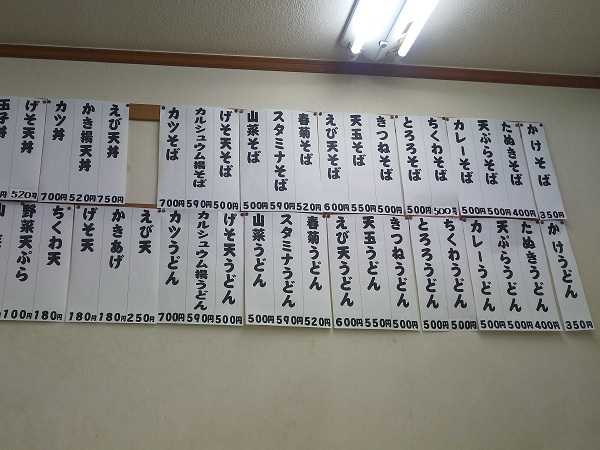 かけそば 350円
たぬきそば 400円
天ぷらそば 500円
カレーそば 500円
ちくわそば 500円
とろろそば 500円
きつねそば 500円
天玉そば 550円
えび天そば 600円
春菊そば 520円
スタミナそば 590円
山菜そば 500円
げそ天そば 500円
カルシュウム揚そば 590円
カツそば 700円
えび天丼 750円
かき揚天丼 520円
カツ丼 700円
げそ天丼 520円
玉子丼
かけうどん 350円
たぬきうどん 400円
天ぷらうどん 500円
カレーうどん 500円
ちくわうどん 500円
とろろうどん 500円
きつねうどん 500円
天玉うどん 550円
えび天うどん 600円
春菊うどん 520円
スタミナうどん 590円
山菜うどん 500円
げそ天うどん 500円
カルシュウム揚うどん 590円
カツうどん 700円
えび天 250円
かきあげ 180円
げそ天 180円
ちくわ天 180円
野菜天ぷら 100円